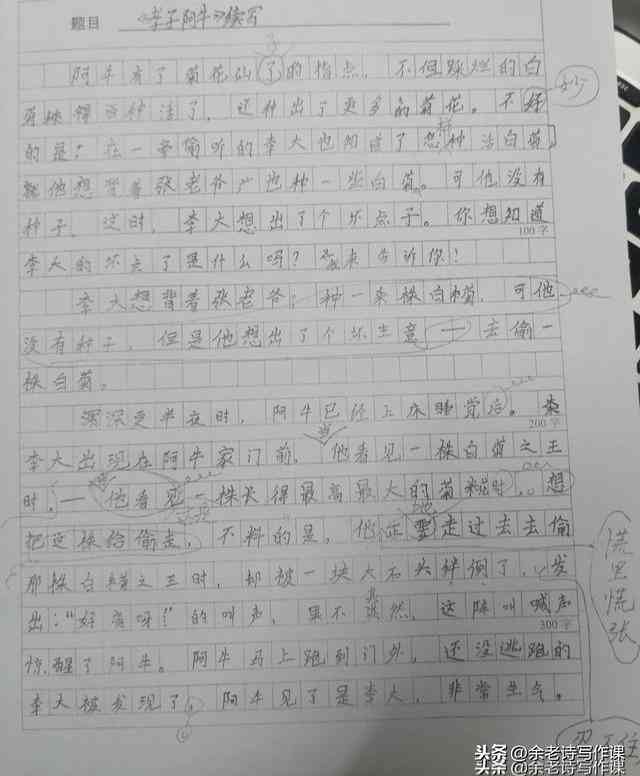 题目 《孝子阿牛》续写
阿牛有了菊花仙子的指点，不但踩烂的白
菊株得 种活了，还种出了更多的菊花。不好 妙
的是：在一旁偷听的李大也知道了怎样种活白菊
他想背着张老爷 也种一些白菊。可他没有
种子，这时，李大想出了个坏点子。你想知道
100字
李大的坏点子是什么吗？我来告诉你！
李大想背着张老爷：种一 株白菊，可他
没有种子，但是他想出了个坏主意——去偷一
株白菊。
深更半夜时，阿牛已经上床睡觉后。
200字
李大出现在阿牛家门前，他看见一株白菊之王
时，——他看见一株长得最高最大的菊 时，想
把这株给偷走，不料的是，他正要走过去去偷
那株白菊之王时，却被一块大石头绊倒了，发 慌里慌张
出：“好疼呀！”的叫声，果不其然，这阵叫喊声
300字
惊醒了阿牛。阿牛马上跑到门外，还没逃跑的
李大被发现了，阿牛见了是李大，非常生气。
忍不住
头条@余老诗写作课
头条@余老诗写作课